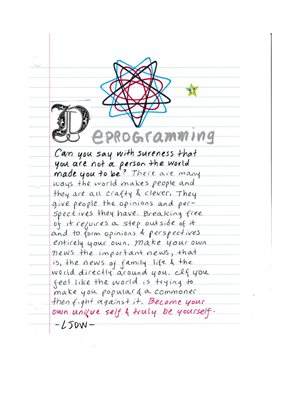 Deprogramming
Can you say with sureness that
you are not a person the world
made you to be? There are many
ways the world makes people and
they are all crafty & clever. They
give people the opinions and per-
spectives they have. Breaking free
of it requires a step outside of it
and to form opinions & perspectives
entirely your own. Make your own
news the important news, that
is, the news of family life & the
world directly around you. If you
feel like the world is trying to
make you popular & a commoner
then fight against it. Become your
own unique self & truly be yourself.
-LJDW-